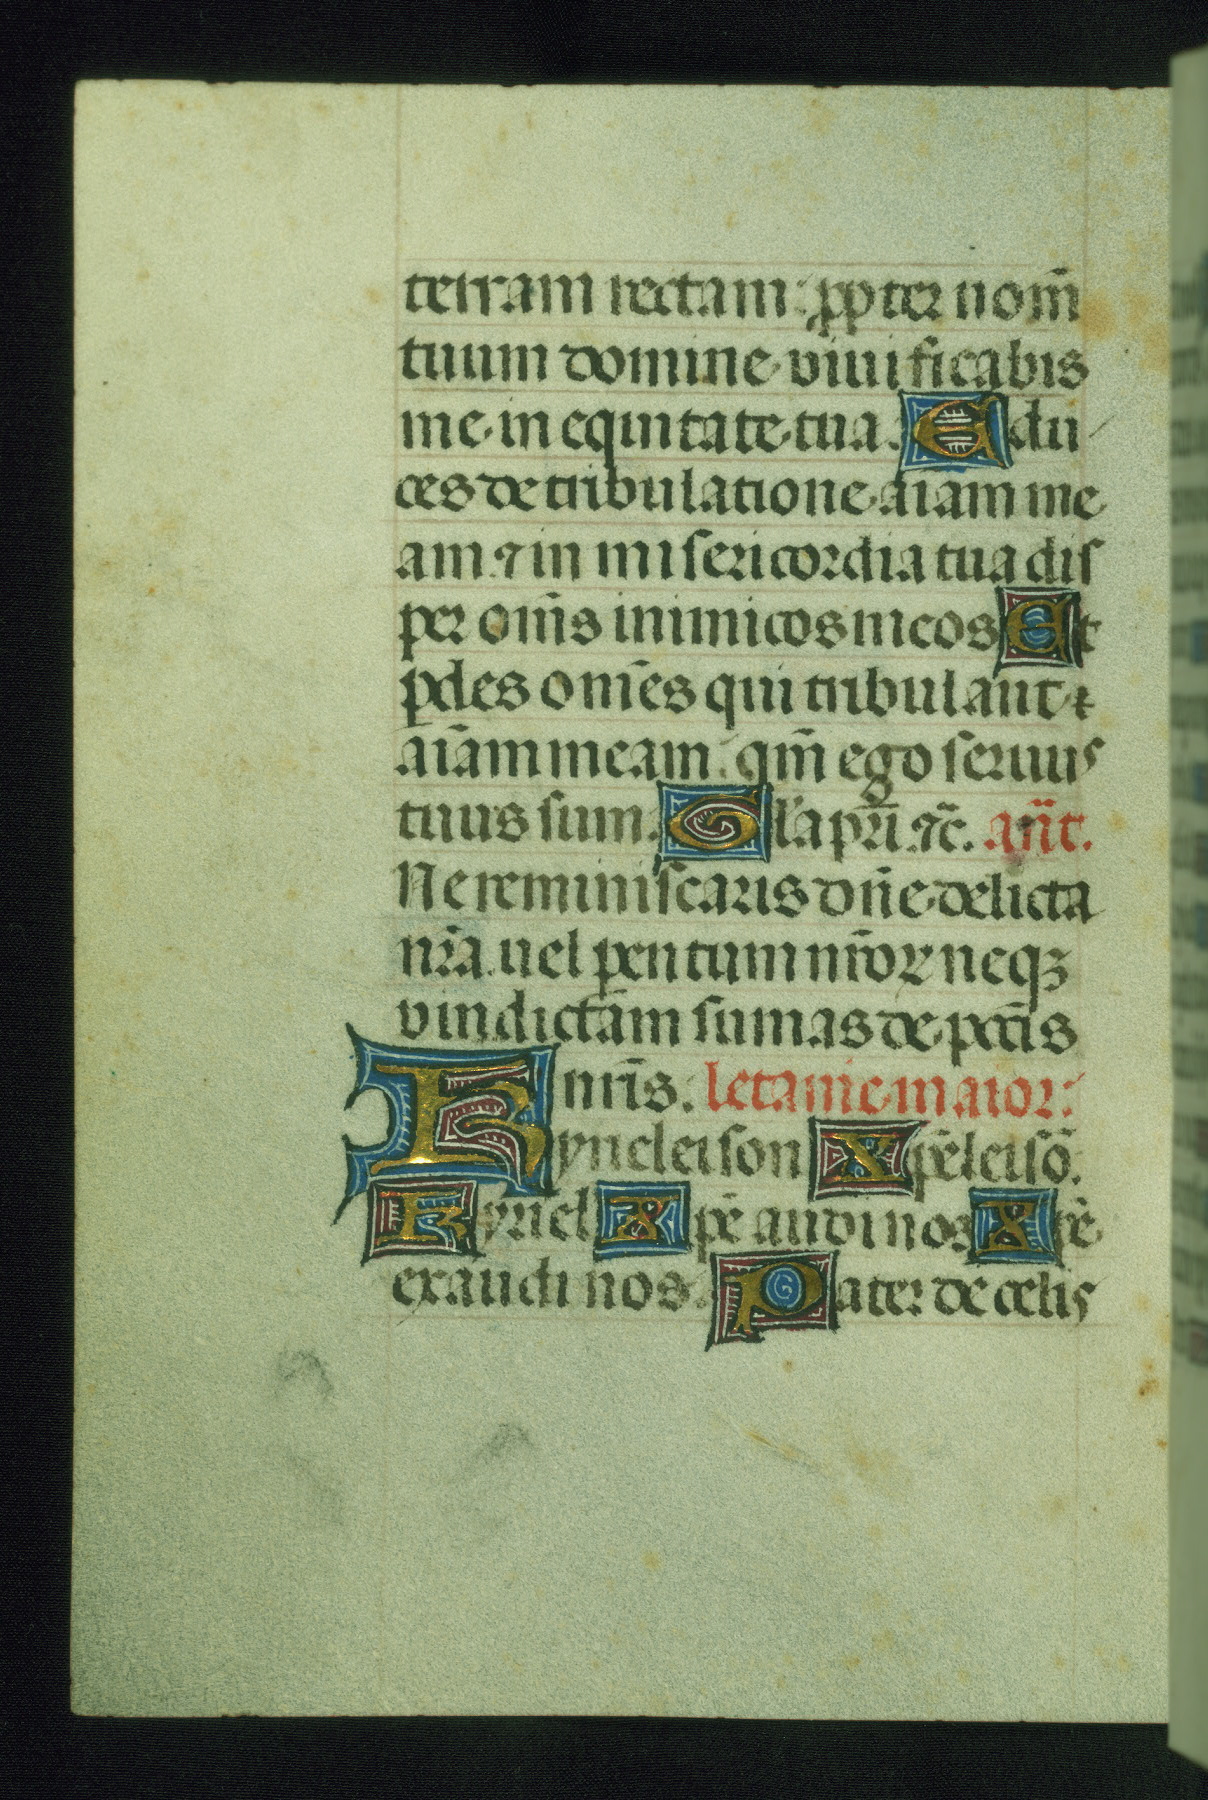 terram rectam: ꝓpter nom̄
tuum domine viuificabis
me in equitate tua. Edu
ces de tribulatione aīam me
am ⁊ in misericordia tua dis
per om̄s inimicos meos Et
ꝑdes om̄es qui tribulant
aīam meam: qm̄ ego seruus
tuus sum. Gl'a pr̄i ⁊c̄. an̄t.
Ne reminiscaris dn̄e delicta
nr̄a uel parentum nr̄oꝝ neqꝫ
vindictam sumas de pccīs
nr̄is. letanie maior:
Kyrieleison Xp̄eleisō.
Kyriel Xpē audi nos Xpē
exaudi nos. Pater de celis